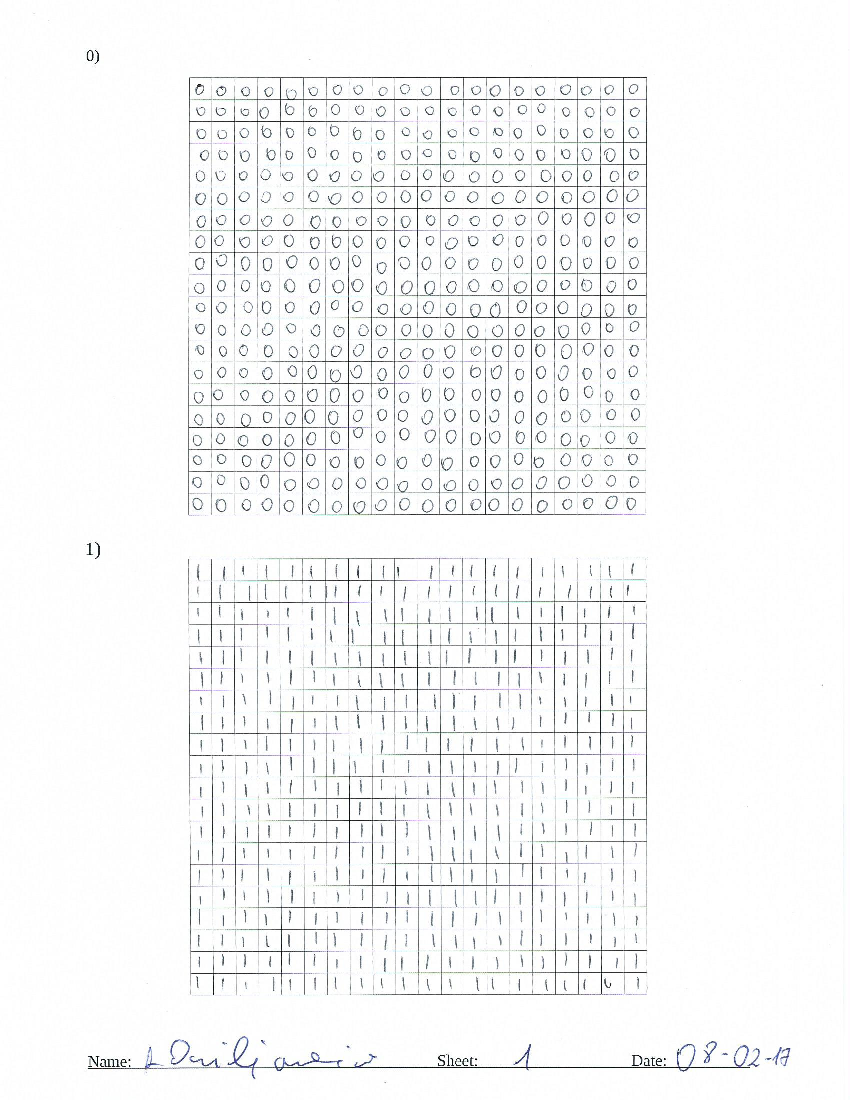 0)
0 0 0 0 0 0 0 0 0 0 0 0 0 0 0 0 0 0 0 0
0 0 0 0 0 0 0 0 0 0 0 0 0 0 0 0 0 0 0 0
0 0 0 0 0 0 0 0 0 0 0 0 0 0 0 0 0 0 0 0
0 0 0 0 0 0 0 0 0 0 0 0 0 0 0 0 0 0 0 0
0 0 0 0 0 0 0 0 0 0 0 0 0 0 0 0 0 0 0 0
0 0 0 0 0 0 0 0 0 0 0 0 0 0 0 0 0 0 0 0
0 0 0 0 0 0 0 0 0 0 0 0 0 0 0 0 0 0 0 0
0 0 0 0 0 0 0 0 0 0 0 0 0 0 0 0 0 0 0 0
0 0 0 0 0 0 0 0 0 0 0 0 0 0 0 0 0 0 0 0
0 0 0 0 0 0 0 0 0 0 0 0 0 0 0 0 0 0 0 0
0 0 0 0 0 0 0 0 0 0 0 0 0 0 0 0 0 0 0 0
0 0 0 0 0 0 0 0 0 0 0 0 0 0 0 0 0 0 0 0
0 0 0 0 0 0 0 0 0 0 0 0 0 0 0 0 0 0 0 0
0 0 0 0 0 0 0 0 0 0 0 0 0 0 0 0 0 0 0 0
0 0 0 0 0 0 0 0 0 0 0 0 0 0 0 0 0 0 0 0
0 0 0 0 0 0 0 0 0 0 0 0 0 0 0 0 0 0 0 0
0 0 0 0 0 0 0 0 0 0 0 0 0 0 0 0 0 0 0 0
0 0 0 0 0 0 0 0 0 0 0 0 0 0 0 0 0 0 0 0
0 0 0 0 0 0 0 0 0 0 0 0 0 0 0 0 0 0 0 0
0 0 0 0 0 0 0 0 0 0 0 0 0 0 0 0 0 0 0 0
1)
1 1 1 1 1 1 1 1 1 1 1 1 1 1 1 1 1 1 1 1
1 1 1 1 1 1 1 1 1 1 1 1 1 1 1 1 1 1 1 1
1 1 1 1 1 1 1 1 1 1 1 1 1 1 1 1 1 1 1 1
1 1 1 1 1 1 1 1 1 1 1 1 1 1 1 1 1 1 1 1
1 1 1 1 1 1 1 1 1 1 1 1 1 1 1 1 1 1 1 1
1 1 1 1 1 1 1 1 1 1 1 1 1 1 1 1 1 1 1 1
1 1 1 1 1 1 1 1 1 1 1 1 1 1 1 1 1 1 1 1
1 1 1 1 1 1 1 1 1 1 1 1 1 1 1 1 1 1 1 1
1 1 1 1 1 1 1 1 1 1 1 1 1 1 1 1 1 1 1 1
1 1 1 1 1 1 1 1 1 1 1 1 1 1 1 1 1 1 1 1
1 1 1 1 1 1 1 1 1 1 1 1 1 1 1 1 1 1 1 1
1 1 1 1 1 1 1 1 1 1 1 1 1 1 1 1 1 1 1 1
1 1 1 1 1 1 1 1 1 1 1 1 1 1 1 1 1 1 1 1
1 1 1 1 1 1 1 1 1 1 1 1 1 1 1 1 1 1 1 1
1 1 1 1 1 1 1 1 1 1 1 1 1 1 1 1 1 1 1 1
1 1 1 1 1 1 1 1 1 1 1 1 1 1 1 1 1 1 1 1
1 1 1 1 1 1 1 1 1 1 1 1 1 1 1 1 1 1 1 1
1 1 1 1 1 1 1 1 1 1 1 1 1 1 1 1 1 1 1 1
1 1 1 1 1 1 1 1 1 1 1 1 1 1 1 1 1 1 1 1
1 1 1 1 1 1 1 1 1 1 1 1 1 1 1 1 1 1 1 1
Name: Sheet: 1 Date: 08-02-17